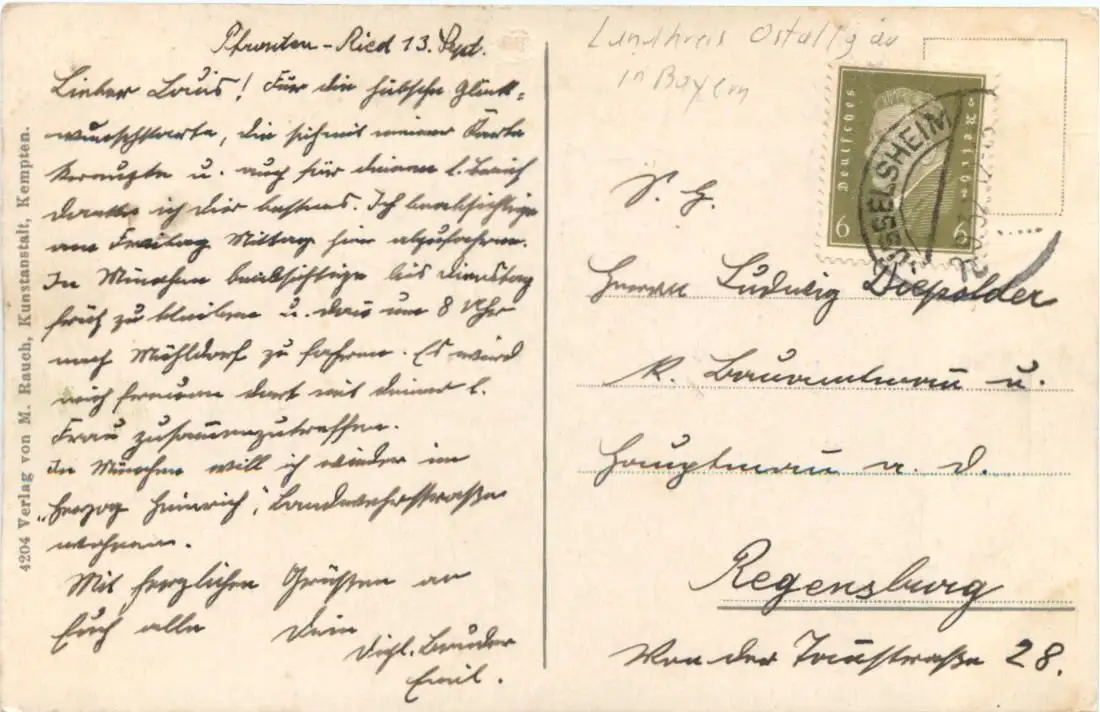 Pfronten-Ried 13. Sept.
Lieber Louis! Für die hübsche Glück-
wunschkarte, die sich mit meiner Karte
kreuzte u. auch für deinen l. Brief
danke ich dir bestens. Ich beabsichtige
am Freitag Mittag hier abzufahren.
In München beabsichtige bis Dienstag
früh zu bleiben u. dann um 8 Uhr
nach Mühldorf zu fahren. Es wird
mich freuen dort mit deiner l.
Frau zusammenzutreffen.
In München will ich wieder im
"Herzog Heinrich", Landwehrstraße
wohnen.
Mit herzlichen Grüßen an
Euch alle Dein
Bruder
Emil.
4204 Verlag von M. Rauch, Kunstanstalt, Kempten.
Landkreis Ostallgäu
in Bayern
Deutsches Reich
6 6
RÜSSELSHEIM
S. H.
Herrn Ludwig Diepolder
K. Bauamtmann u.
Hauptmann a. D.
Regensburg
Von der Tannstraße 28.